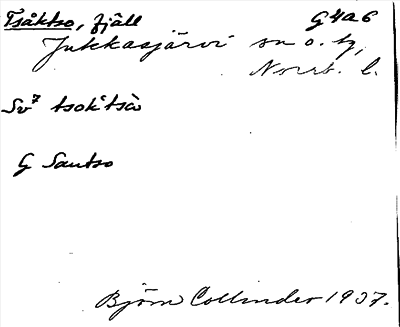 Tsåktso, fjäll G4a6
Jukkasjärvi sn o. tg,
Norrb. l.
Sv⁷ tsok'tsò
G Sautso
Björn Collinder 1937.